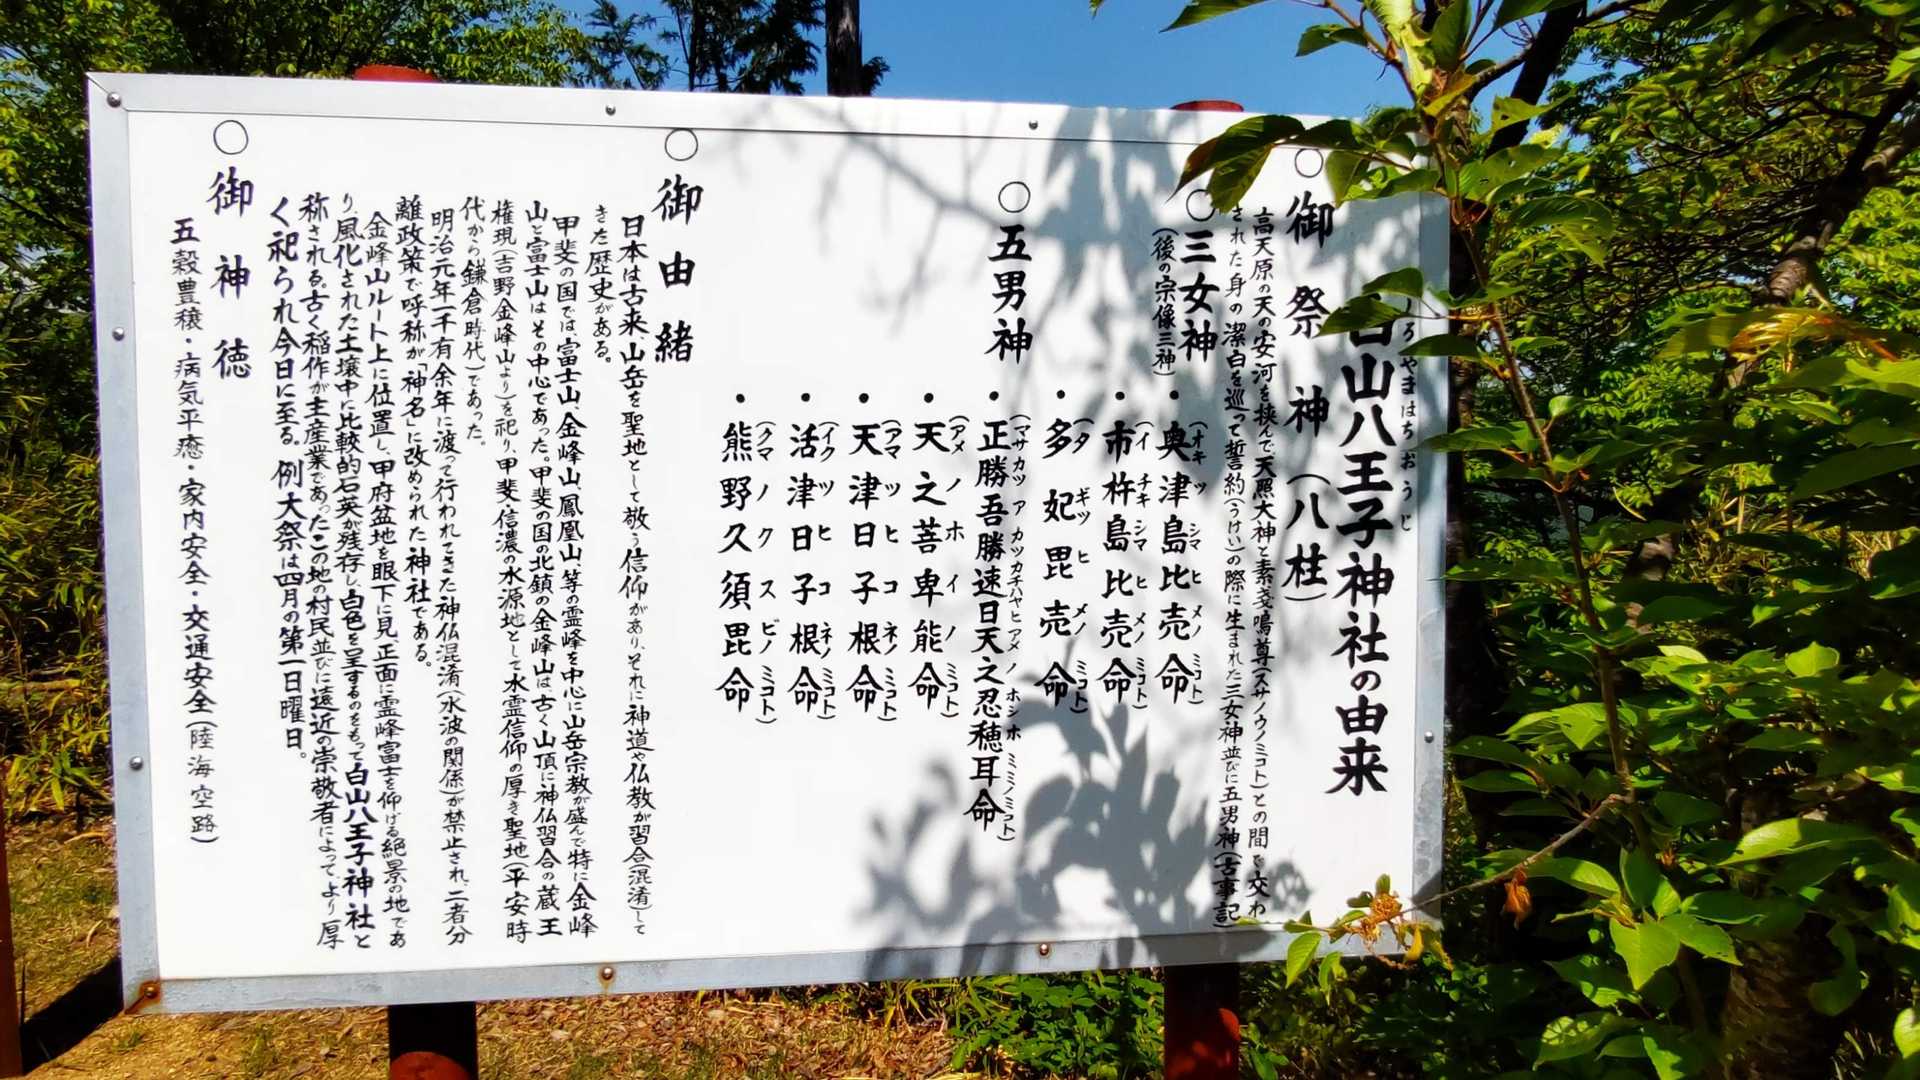 白山八王子神社の由来
ろやまはちおうじ
○御祭神(八柱)
高天原の天の安河を挟んで天照大神と素戔鳴尊(スサノウノミコト)との間で交わ
された身の潔白を巡って誓約(うけい)の際に生まれた三女神並びに五男神(古事記)
○三女神
(後の宗像三神)
・奥津島比売命
(オキツシマヒメノミコト)
・市杵島比売命
(イチキシマヒメノミコト)
・多妃毘売命
(タギツヒメノミコト)
○五男神
・正勝吾勝速日天之忍穂耳命
(マサカツアカツカチハヤヒアメノホシホミミノミコト)
・天之菩卑能命
(アメノホイノミコト)
・天津日子根命
(アマツヒコネノミコト)
・活津日子根命
(イクツヒコネノミコト)
・熊野久須毘命
(クマノクスビノミコト)
○御由緒
日本は古来、山岳を聖地として敬う信仰があり、それに神道や仏教が習合(混淆)して
きた歴史がある。
甲斐の国では、富士山、金峰山、鳳凰山、等の霊峰を中心に山岳宗教が盛んで特に金峰
山と富士山はその中心であった。甲斐の国の北鎮の金峰山は、古く山頂に神仏習合の蔵王
権現(吉野金峰山より)を祀り、甲斐・信濃の水源地として水霊信仰の厚き聖地(平安時
代から鎌倉時代)であった。
明治元年一千有余年に渡って行われてきた神仏混淆(水波の関係)が禁止され、二者分
離政策で呼称が「神名」に改められた神社である。
金峰山ルート上に位置し、甲府盆地を眼下に見、正面に霊峰富士を仰げる絶景の地であ
り風化された土壌中に比較的石英が残存し、白色を呈するのをもって白山八王子神社と
称される。古く稲作が主産業であったこの地の村民並びに遠近の崇敬者によって、より厚
く祀られ今日に至る。例大祭は四月の第一日曜日。
○御神徳
五穀豊穣・病気平癒・家内安全・交通安全(陸海空路)